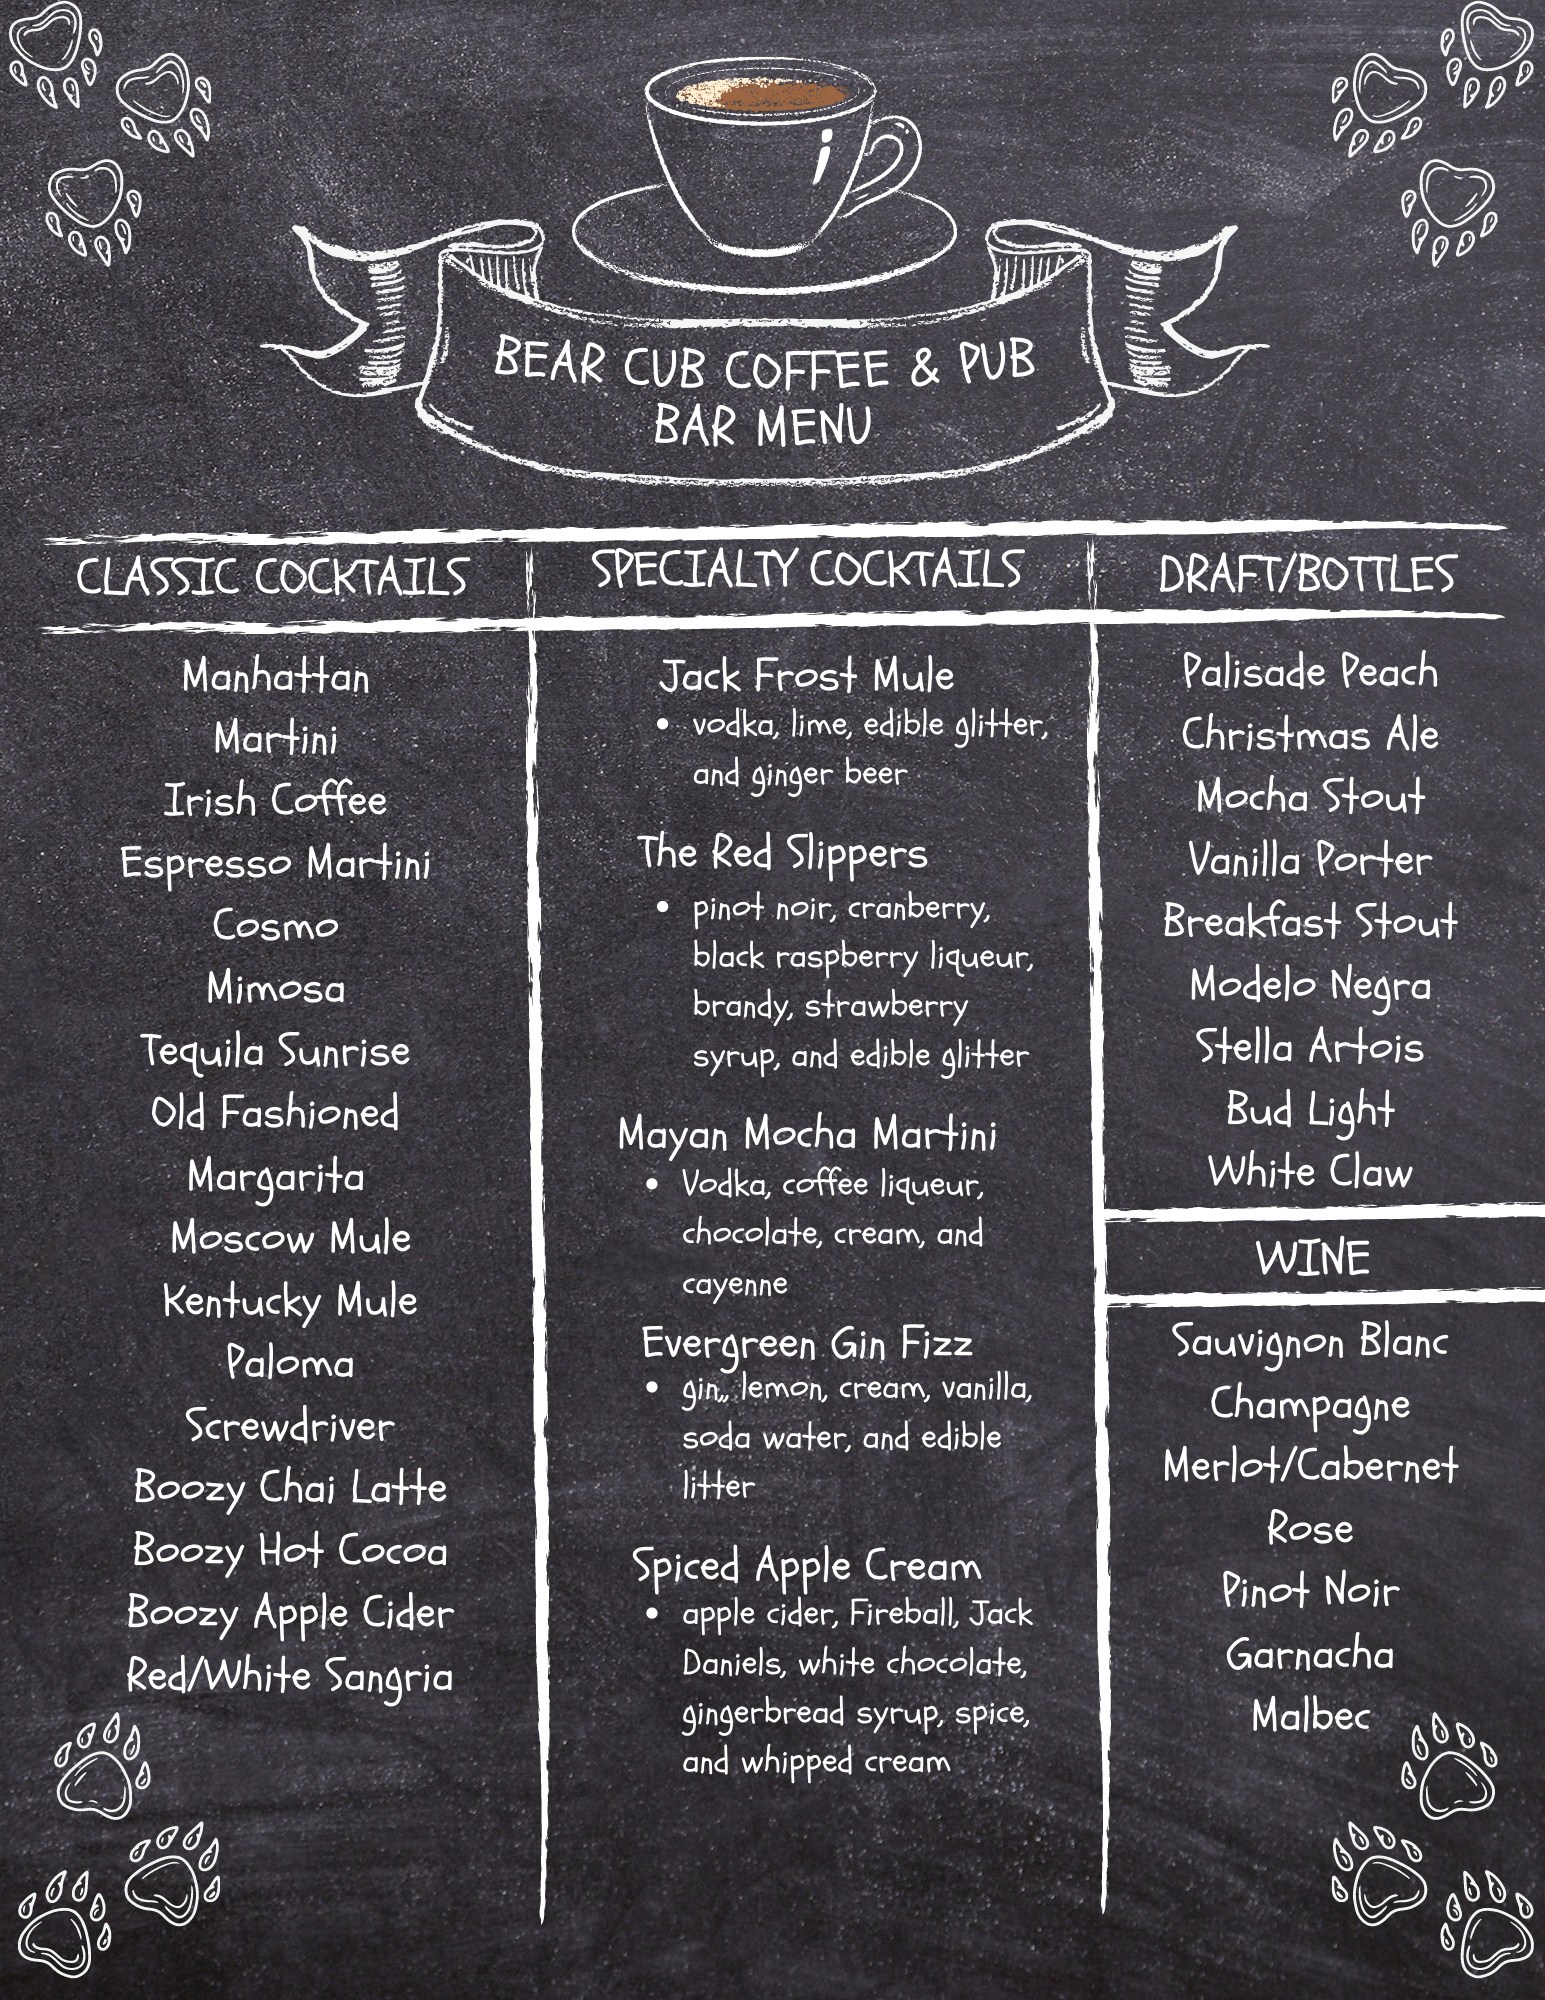 BEAR CUB COFFEE & PUB
BAR MENU
CLASSIC COCKTAILS
Manhattan
Martini
Irish Coffee
Espresso Martini
Cosmo
Mimosa
Tequila Sunrise
Old Fashioned
Margarita
Moscow Mule
Kentucky Mule
Paloma
Screwdriver
Boozy Chai Latte
Boozy Hot Cocoa
Boozy Apple Cider
Red/White Sangria
SPECIALTY COCKTAILS
Jack Frost Mule
• vodka, lime, edible glitter,
and ginger beer
The Red Slippers
• pinot noir, cranberry,
black raspberry liqueur,
brandy, strawberry
syrup, and edible glitter
Mayan Mocha Martini
• Vodka, coffee liqueur,
chocolate, cream, and
cayenne
Evergreen Gin Fizz
• gin,, lemon, cream, vanilla,
soda water, and edible
litter
Spiced Apple Cream
• apple cider, Fireball, Jack
Daniels, white chocolate,
gingerbread syrup, spice,
and whipped cream
DRAFT/BOTTLES
Palisade Peach
Christmas Ale
Mocha Stout
Vanilla Porter
Breakfast Stout
Modelo Negra
Stella Artois
Bud Light
White Claw
WINE
Sauvignon Blanc
Champagne
Merlot/Cabernet
Rose
Pinot Noir
Garnacha
Malbec